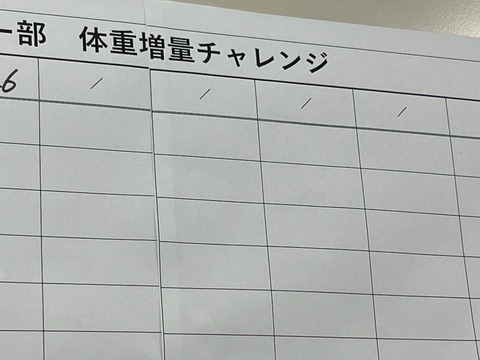 ー部 体重増量チャレンジ
6 / / / /